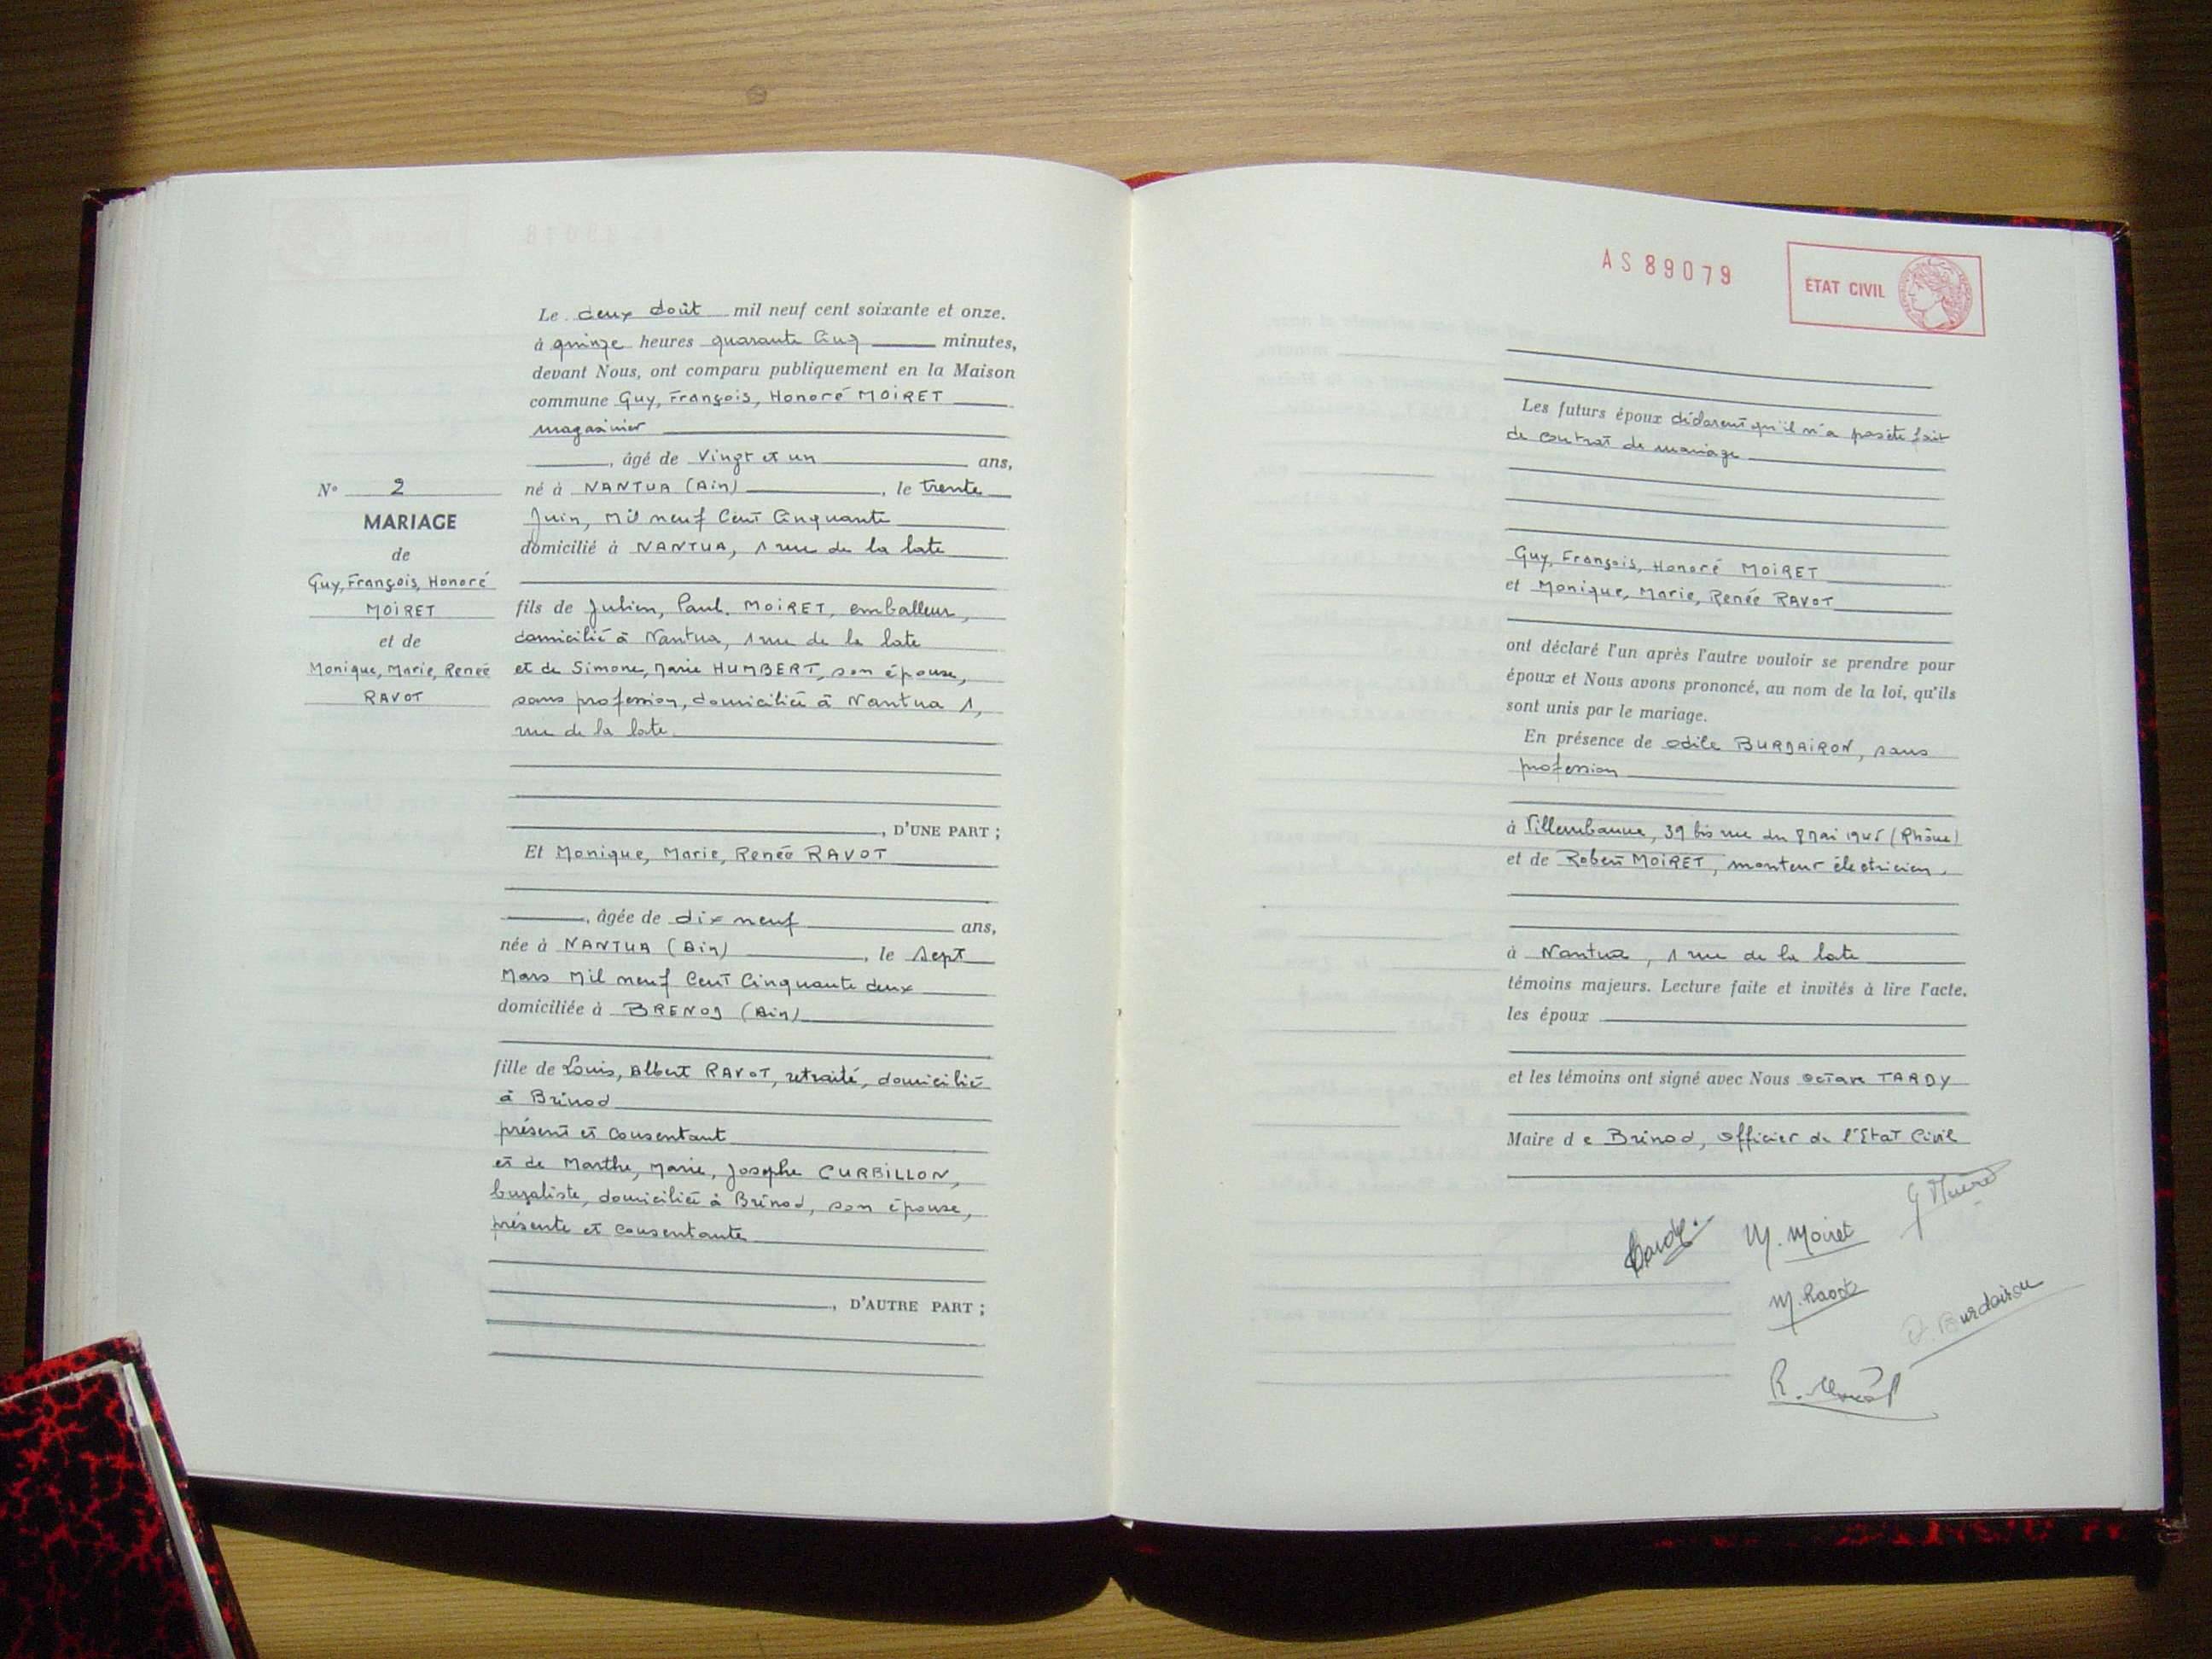 Le deux Août mil neuf cent soixante et onze.
à quinze heures quarante Cinq minutes,
devant Nous, ont comparu publiquement en la Maison
commune Guy, François, Honoré MOIRET
magasinier
, âgé de Vingt et un ans,
né à NANTUA (Ain), le trente
Juin, Mil neuf Cent Cinquante
domicilié à NANTUA, 1 rue de la
fils de Julien, Paul. MOIRET, emballeur,
domicilié à Nantua, 1 rue de la
et de Simone, Marie HUMBERT, son épouse,
sans profession, domiciliée à Nantua 1,
rue de la
, D'UNE PART ;
Et Monique, Marie, Renée RAVOT
, âgée de dix neuf ans,
née à NANTUA (Ain), le Sept
Mars Mil neuf Cent Cinquante deux
domiciliée à BRENOD (Ain)
fille de Louis, Albert RAVOT, retraité, domicilié
à Brénod
présent et Consentant
et de Marthe, Marie, Josephe CURBILLON,
buraliste, domiciliée à Brénod, son épouse,
présente et Consentante
, D'AUTRE PART ;
N° 2
MARIAGE
de
Guy, François, Honoré
MOIRET
et de
Monique, Marie, Renée
RAVOT
AS 89079
ÉTAT CIVIL
Les futurs époux déclarent qu'il n'a pas été fait
de Contrat de mariage
Guy, François, Honoré MOIRET
et Monique, Marie, Renée RAVOT
ont déclaré l'un après l'autre vouloir se prendre pour
époux et Nous avons prononcé, au nom de la loi, qu'ils
sont unis par le mariage.
En présence de Odile BURDAIRON, sans
profession
à Villeurbanne, 39 bis rue du 8 Mai 1945 (Rhône)
et de Robert MOIRET, monteur électricien.
à Nantua, 1 rue de la
témoins majeurs. Lecture faite et invités à lire l'acte,
les époux
et les témoins ont signé avec Nous Octave TARDY
Maire de Brénod, Officier de l'Etat Civil
M. Moiret
O. Burdairon